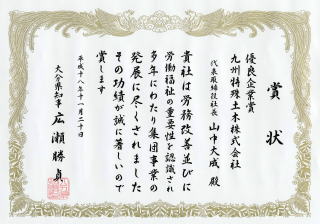 賞状
優良企業賞
九州特殊土木株式会社
代表取締役社長 山中大成 殿
貴社は労務改善並びに
労働福祉の重要性を認識され
多年にわたり集団事業の
発展に尽くされました
その功績が誠に著しいので
賞します
平成十八年十一月二十日
大分県知事 広瀬勝貞